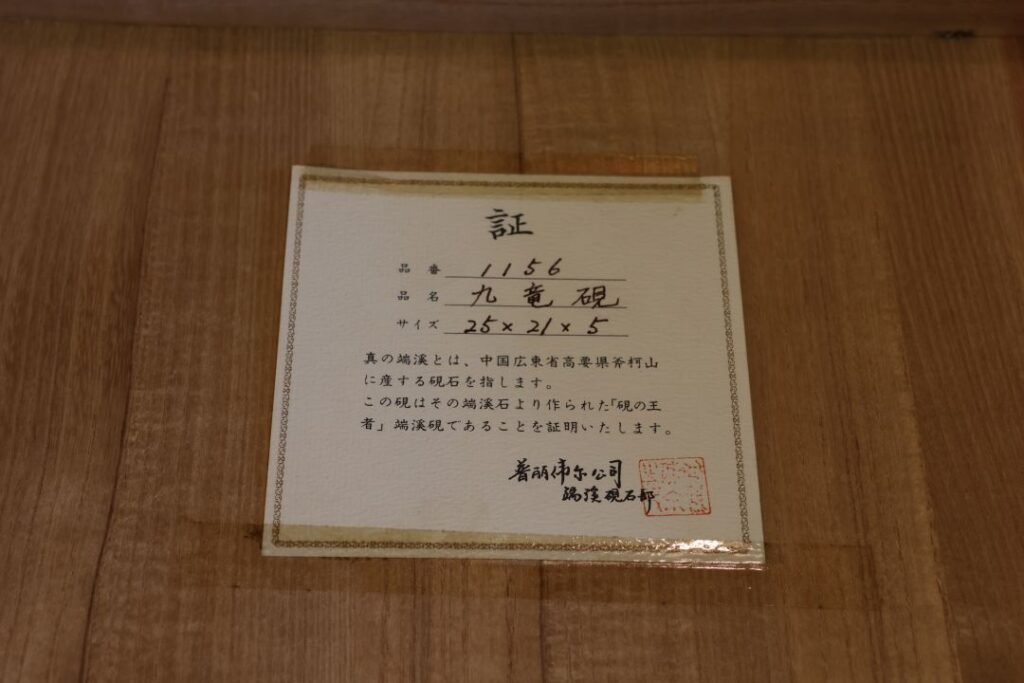 証
品番 1156
品名 九竜硯
サイズ 25×21×5
真の端溪とは、中国広東省高要県斧柯山
に産する硯石を指します。
この硯はその端溪石より作られた「硯の王
者」端溪硯であることを証明いたします。
端溪硯石部